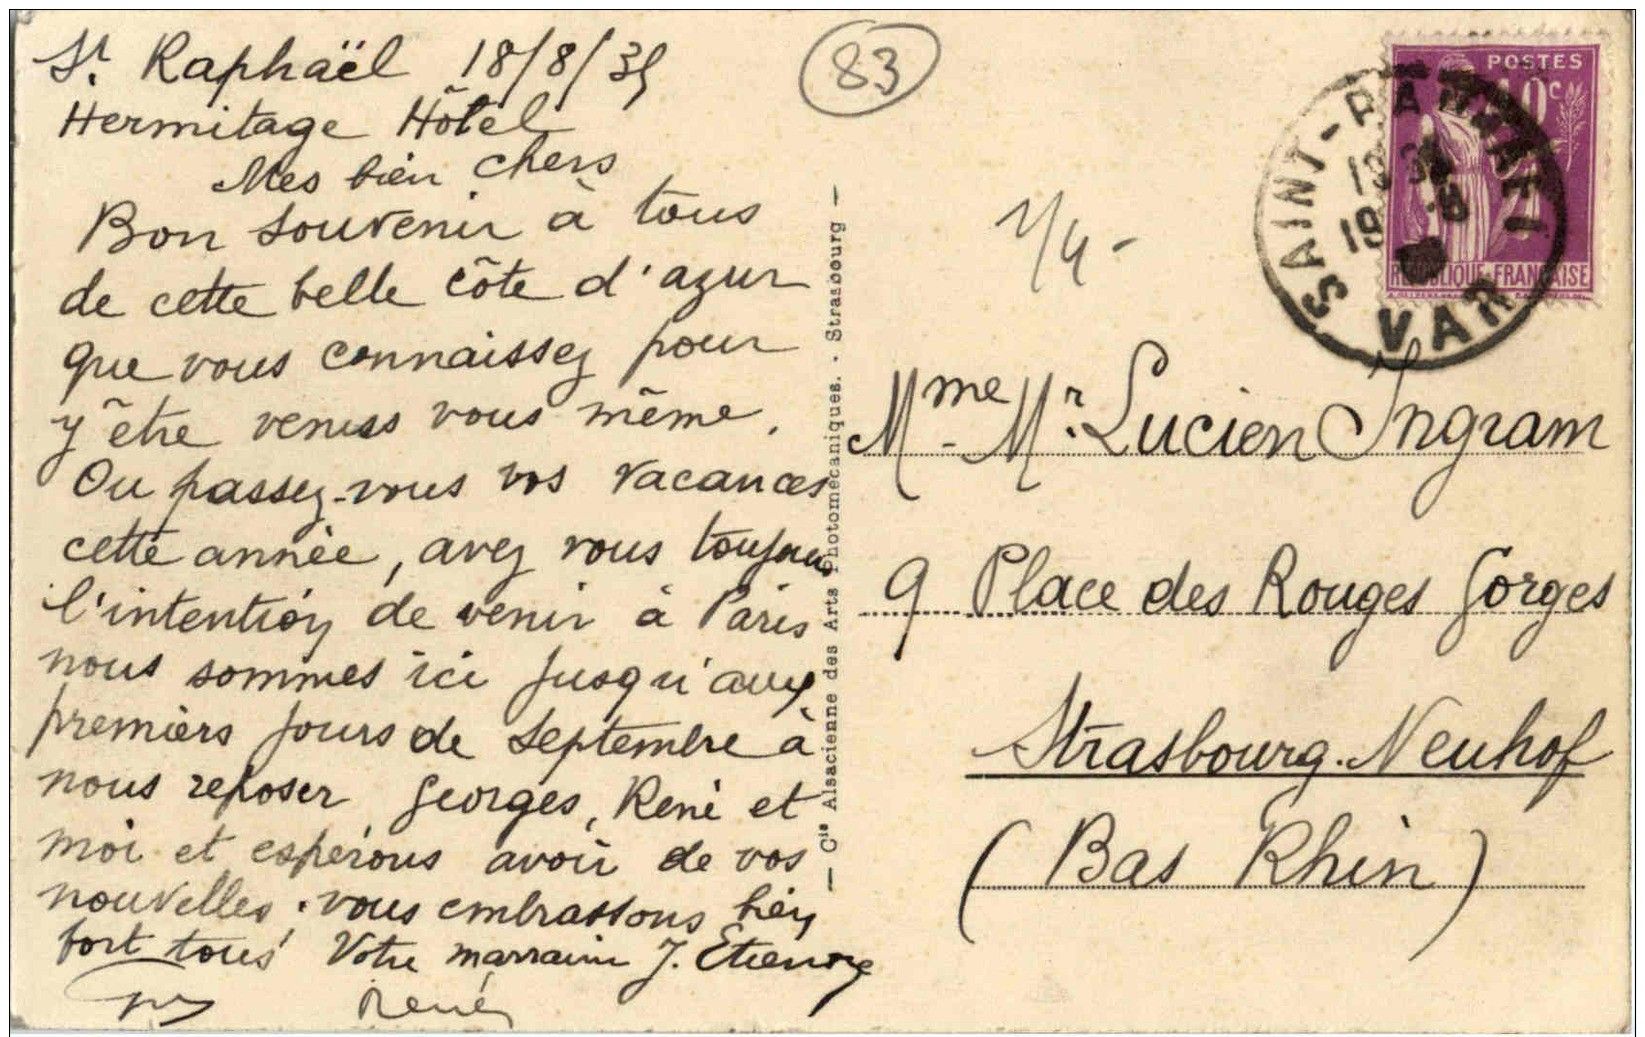 St. Raphaël 18/8/35
Hermitage Hôtel
Mes bien chers
Bon souvenir à tous
de cette belle côte d'azur
que vous connaissez pour
y être venus vous même.
Ou passez-vous vos vacances
cette année, avez vous toujours
l'intention de venir à Paris
nous sommes ici jusqu'aux
premiers jours de Septembre à
nous reposer Georges, René et
moi et espérons avoir de vos
nouvelles. vous embrassons bien
fort tous Votre marraine J. Etienne
René
83
1/4-
— Cie Alsacienne des Arts Photomécaniques. - Strasbourg —
POSTES
40c
REPUBLIQUE-FRANÇAISE
SAINT-RAPHAËL
VAR
Mme - Mr. Lucien Ingram
9 Place des Rouges Gorges
Strasbourg-Neuhof
(Bas Rhin)